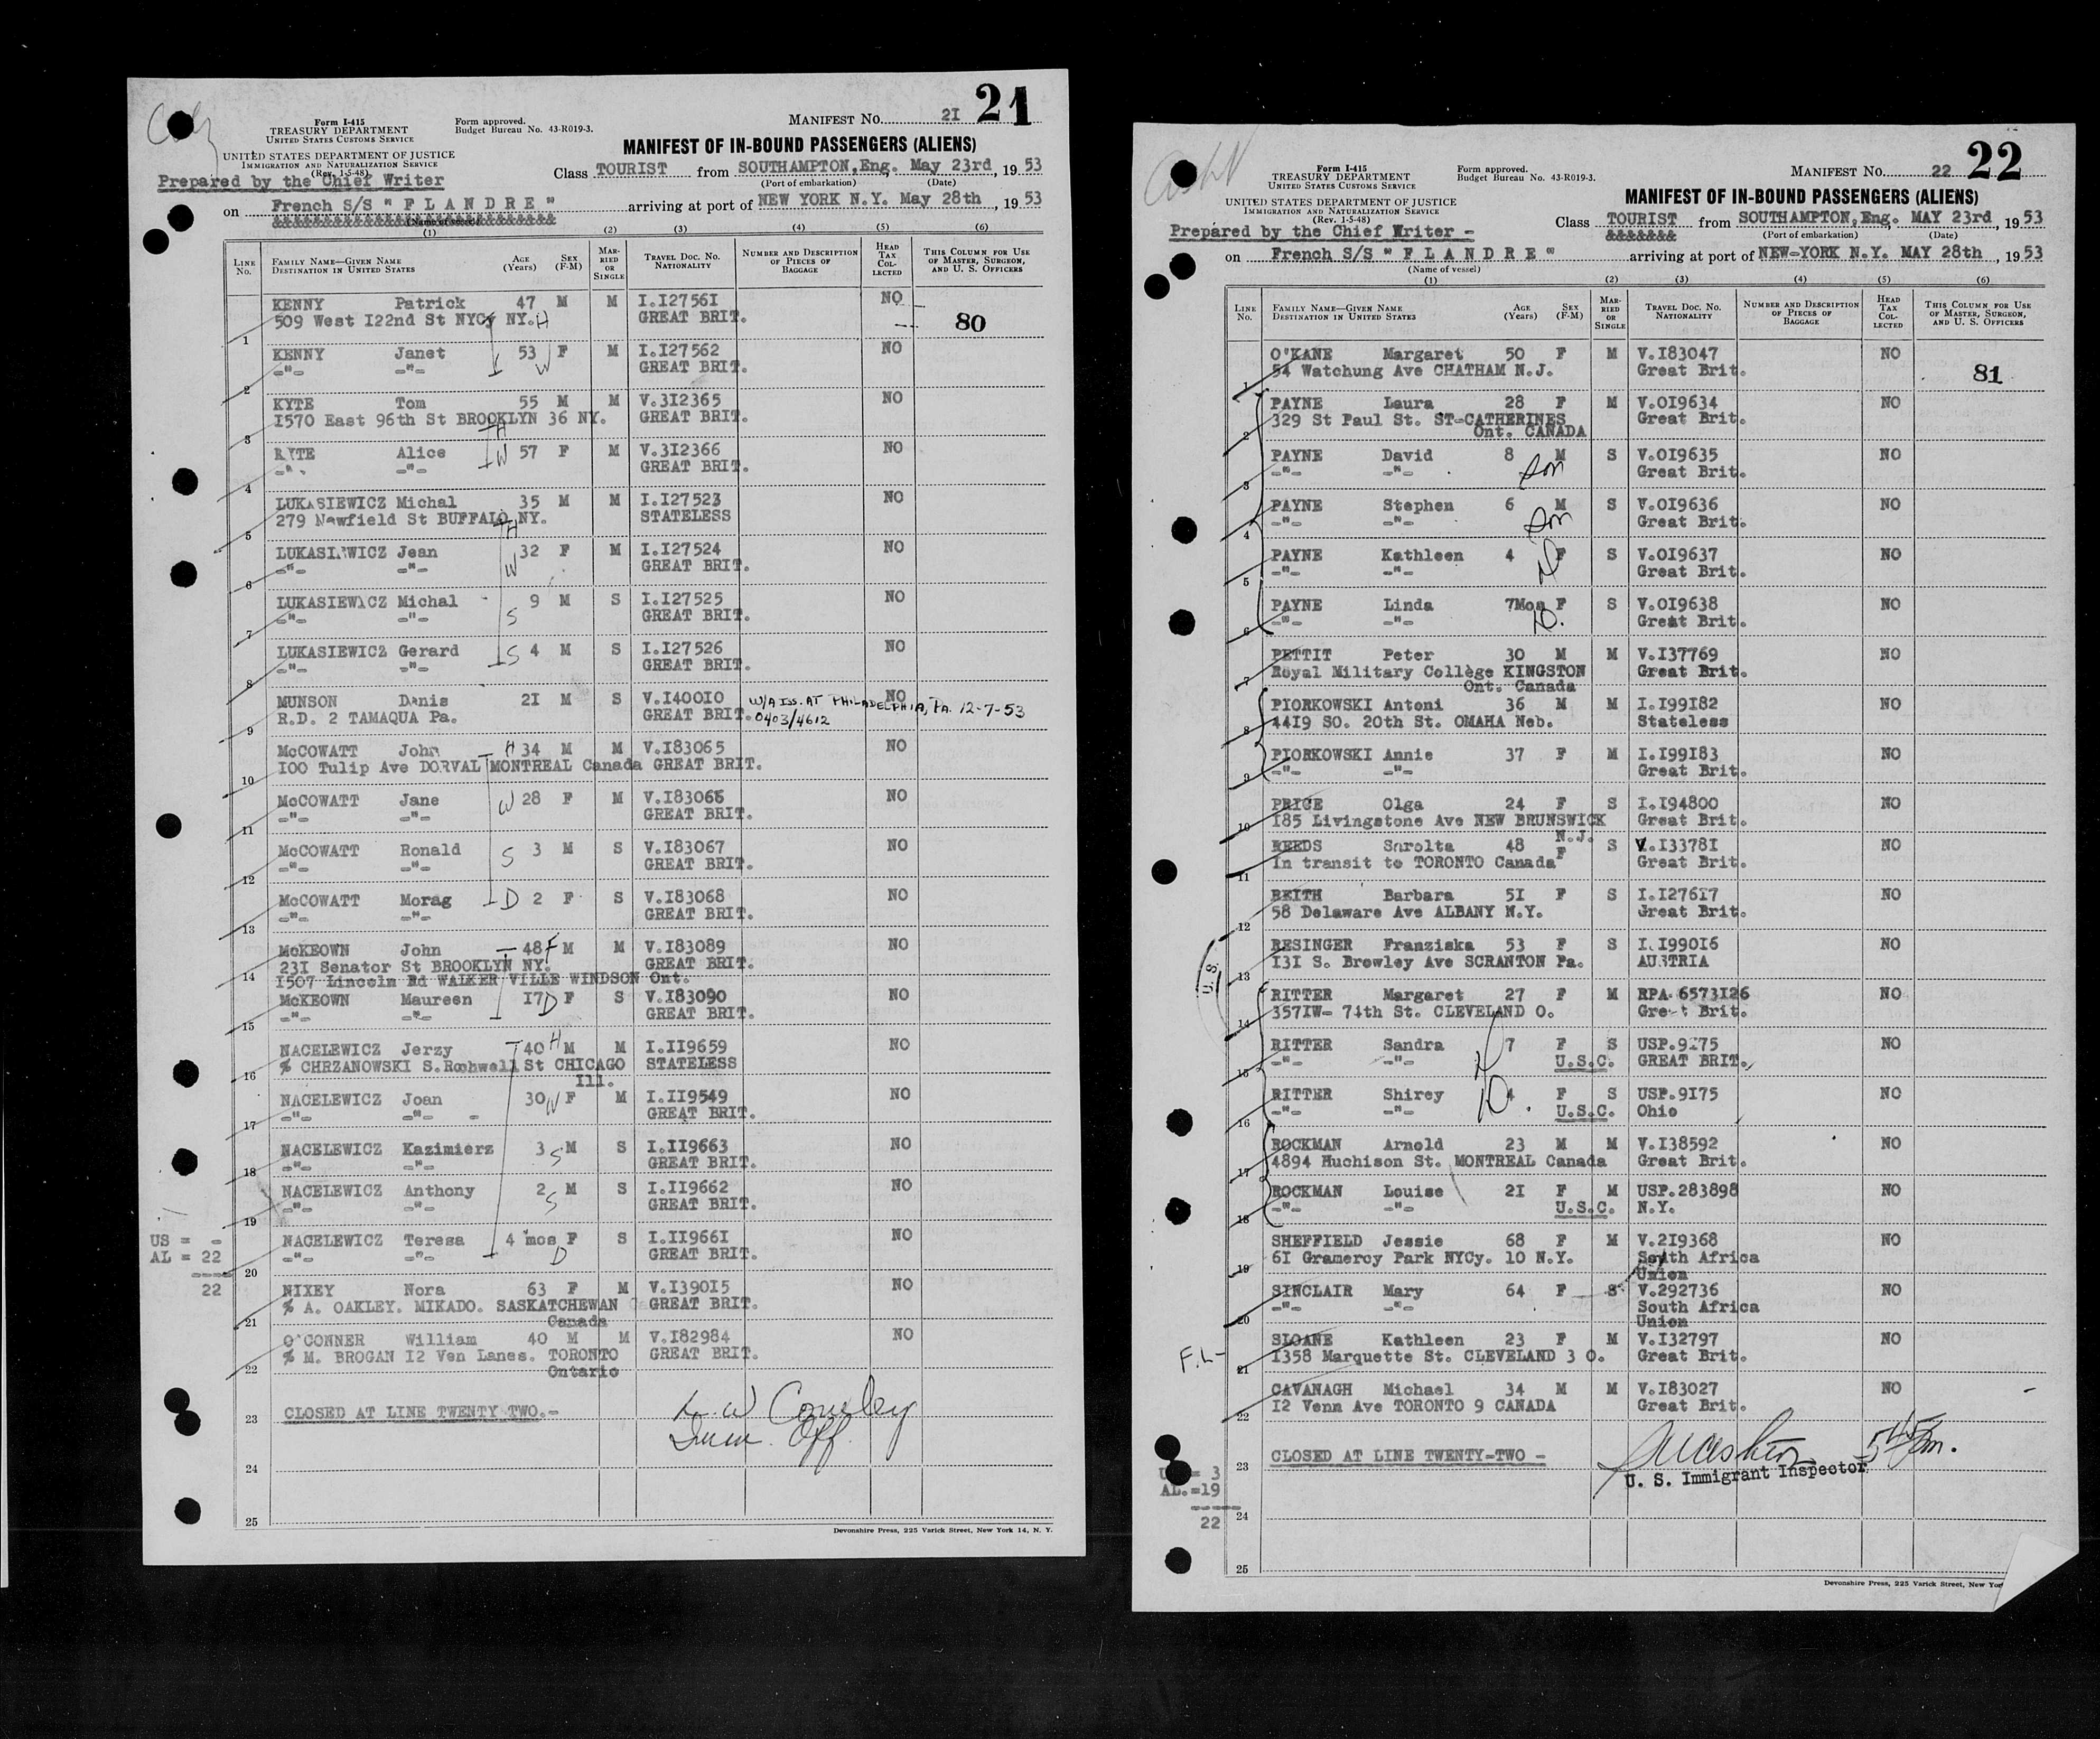 Form I-415
TREASURY DEPARTMENT
UNITED STATES CUSTOMS SERVICE
Form approved.
Budget Bureau No. 43-R019-3.
MANIFEST NO. 2I 21
UNITED STATES DEPARTMENT OF JUSTICE
IMMIGRATION AND NATURALIZATION SERVICE
(Rev. 1-5-48)
MANIFEST OF IN-BOUND PASSENGERS (ALIENS)
Prepared by the Chief Writer
Class TOURIST from SOUTHAMPTON,Eng. May 23rd, 1953
(Port of embarkation) (Date)
on French S/S " F L A N D R E " arriving at port of NEW YORK N.Y. May 28th, 1953
(Name of vessel)
(1) (2) (3) (4) (5) (6)
LINE No. FAMILY NAME—GIVEN NAME DESTINATION IN UNITED STATES AGE (Years) SEX (F-M) MARRIED OR SINGLE TRAVEL DOC. NO. NATIONALITY NUMBER AND DESCRIPTION OF PIECES OF BAGGAGE HEAD TAX COLLECTED THIS COLUMN FOR USE OF MASTER, SURGEON, AND U. S. OFFICERS
KENNY Patrick 47 M M I.I2756I NO
509 West I22nd St NYCy NY. H GREAT BRIT. 80
1
KENNY Janet 53 W F M I.I27562 NO
-"- -"- GREAT BRIT.
2
KYTE Tom 55 M M V.3I2365 NO
I570 East 96th St BROOKLYN 36 NY. GREAT BRIT.
3 H
RYTE Alice W 57 F M V.3I2366 NO
-"- -"- GREAT BRIT.
4
LUKASIEWICZ Michal 35 M M I.I27523 NO
279 Newfield St BUFFALO NY. STATELESS
5 H
LUKASIEWICZ Jean 32 F M I.I27524 NO
-"- -"- W GREAT BRIT.
6
LUKASIEWICZ Michal 9 M S I.I27525 NO
-"- -"- S GREAT BRIT.
7
LUKASIEWICZ Gerard S 4 M S I.I27526 NO
-"- -"- GREAT BRIT.
8
MUNSON Denis 2I M S V.I400I0 W/A ISS. AT PHILADELPHIA, PA. 12-7-53 NO
R.D. 2 TAMAQUA Pa. GREAT BRIT. 0403/4612
9
McCOWATT John H 34 M M V.I83065 NO
I00 Tulip Ave DORVAL MONTREAL Canada GREAT BRIT.
10
McCOWATT Jane W 28 F M V.I83066 NO
-"- -"- GREAT BRIT.
11
McCOWATT Ronald S 3 M S V.I83067 NO
-"- -"- GREAT BRIT.
12
McCOWATT Morag D 2 F S V.I83068 NO
-"- -"- GREAT BRIT.
13
McKEOWN John 48 F M M V.I83089 NO
23I Senator St BROOKLYN NY. GREAT BRIT.
14 I507 Lincoln Rd WALKER VILLE WINDSON Ont.
McKEOWN Maureen I7 D F S V.I83090 NO
-"- -"- GREAT BRIT.
15
NACELEWICZ Jerzy 40 H M M I.II9659 NO
% CHRZANOWSKI S.Rockwell St CHICAGO STATELESS
16 Ill.
NACELEWICZ Joan 30 W F M I.II9549 NO
-"- -"- - GREAT BRIT.
17
NACELEWICZ Kazimierz 3 S M S I.II9663 NO
-"- -"- GREAT BRIT.
18
NACELEWICZ Anthony 2 S M S I.II9662 NO
-"- -"- GREAT BRIT.
19
US = -
NACELEWICZ Teresa 4 mos F S I.II966I NO
AL = 22 -"- -"- D GREAT BRIT.
20
22 NIXEY Nora 63 F M V.I390I5 NO
% A. OAKLEY. MIKADO. SASKATCHEWAN GREAT BRIT.
21 Canada
O'CONNER William 40 M M V.I82984 NO
% M. BROGAN I2 Ven Lanes. TORONTO GREAT BRIT.
22 Ontario
CLOSED AT LINE TWENTY TWO.-
23
Imm. Off.
24
25
Devonshire Press, 225 Varick Street, New York 14, N. Y.
Form I-415
TREASURY DEPARTMENT
UNITED STATES CUSTOMS SERVICE
Form approved.
Budget Bureau No. 43-R019-3.
MANIFEST NO. 22 22
UNITED STATES DEPARTMENT OF JUSTICE
IMMIGRATION AND NATURALIZATION SERVICE
(Rev. 1-5-48)
MANIFEST OF IN-BOUND PASSENGERS (ALIENS)
Prepared by the Chief Writer -
Class TOURIST from SOUTHAMPTON,Eng. MAY 23rd, 1953
&&&&&&& (Port of embarkation) (Date)
on French S/S " F L A N D R E " arriving at port of NEW-YORK N.Y. MAY 28th, 1953
(Name of vessel)
(1) (2) (3) (4) (5) (6)
LINE No. FAMILY NAME—GIVEN NAME DESTINATION IN UNITED STATES AGE (Years) SEX (F-M) MARRIED OR SINGLE TRAVEL DOC. NO. NATIONALITY NUMBER AND DESCRIPTION OF PIECES OF BAGGAGE HEAD TAX COLLECTED THIS COLUMN FOR USE OF MASTER, SURGEON, AND U. S. OFFICERS
O'KANE Margaret 50 F M V.I83047 NO
54 Watchung Ave CHATHAM N.J. Great Brit. 81
1
PAYNE Laura 28 F M V.0I9634 NO
329 St Paul St. ST-CATHERINES Great Brit.
2 Ont. CANADA
PAYNE David 8 M S V.0I9635 NO
-"- -"- son Great Brit.
3
PAYNE Stephen 6 M S V.0I9636 NO
-"- -"- son Great Brit.
4
PAYNE Kathleen 4 F S V.0I9637 NO
-"- -"- D Great Brit.
5
PAYNE Linda 7Mos F S V.0I9638 NO
-"- -"- D. Great Brit.
6
PETTIT Peter 30 M M V.I37769 NO
Royal Military Collège KINGSTON Great Brit.
7 Ont. Canada
PIORKOWSKI Antoni 36 M M I.I99I82 NO
44I9 SO. 20th St. OMAHA Neb. Stateless
8
PIORKOWSKI Annie 37 F M I.I99I83 NO
-"- -"- Great Brit.
9
PRICE Olga 24 F S I.I94800 NO
I85 Livingstone Ave NEW BRUNSWICK Great Brit.
10 N.J.
REEDS Sarolta 48 F S V.I3378I NO
In transit to TORONTO Canada Great Brit.
11
REITH Barbara 5I F S I.I276I7 NO
58 Delaware Ave ALBANY N.Y. Great Brit.
12
RESINGER Franziska 53 F S I.I990I6 NO
I3I S. Browley Ave SCRANTON Pa. AUSTRIA
13
U. S.
RITTER Margaret 27 F M RPA. 6573I26 NO
357IW- 74th St. CLEVELAND O. Great Brit.
14
RITTER Sandra 7 F S USP.9I75 NO
-"- -"- D U.S.C. GREAT BRIT.
15
RITTER Shirey 4 F S USP.9I75 NO
-"- -"- D. U.S.C. Ohio
16
ROCKMAN Arnold 23 M M V.I38592 NO
4894 Huchison St. MONTREAL Canada Great Brit.
17
ROCKMAN Louise 2I F M USP.283898 NO
-"- -"- U.S.C. N.Y.
18
SHEFFIELD Jessie 68 F M V.2I9368 NO
6I Gramercy Park NYCy. I0 N.Y. South Africa
19 Union
SINCLAIR Mary 64 F S V.292736 NO
-"- -"- South Africa
20 Union
SLOANE Kathleen 23 F M V.I32797 NO
F.L- I358 Marquette St. CLEVELAND 3 O. Great Brit.
21
CAVANAGH Michael 34 M M V.I83027 NO
I2 Venn Ave TORONTO 9 CANADA Great Brit.
22
CLOSED AT LINE TWENTY-TWO -
23 U. S. Immigrant Inspector
= 3
AL.=19
24
22
25
Devonshire Press, 225 Varick Street, New Yor